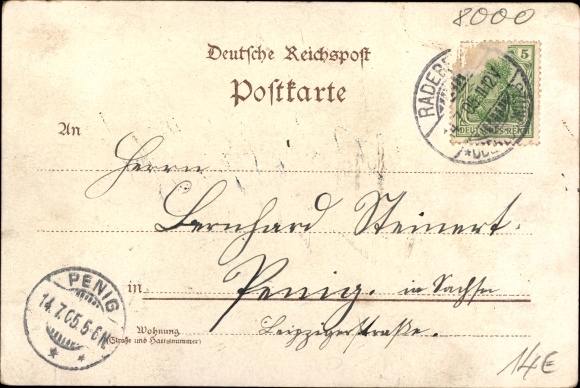 8000
Deutsche Reichspost
Postkarte
5
DEUTSCHES REICH
RADEBE
An
Herrn
Bernhard Steinert.
in Penig. in Sachsen
Leipzigerstraße.
Wohnung
(Straße und Hausnummer)
PENIG
14.7.05.5-6N.
* *
14€